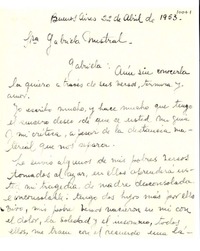 Buenos Aires 22 de Abril de 1953.
Sra Gabriela Mistral.
Gabriela: Aún sin conocerla
la quiero a través de sus versos, ternura y
amor.
Yo escribo mucho, y hace mucho que tengo
el anhelo de que sea usted mi guía
o mi crítica, a pesar de la distancia ma-
terial, que nos separa.
Le envío algunos de mis pobres versos
tomados al azar, en ellos abrendera en-
tre, mi tragedia, de madre desconsolada
e inconsolable. tengo dos hijos más por ellos
vivo, mis versos nacieron en mí con
el dolor, la soledad y el insomnio, todos
ellos me traen con el recuerdo una